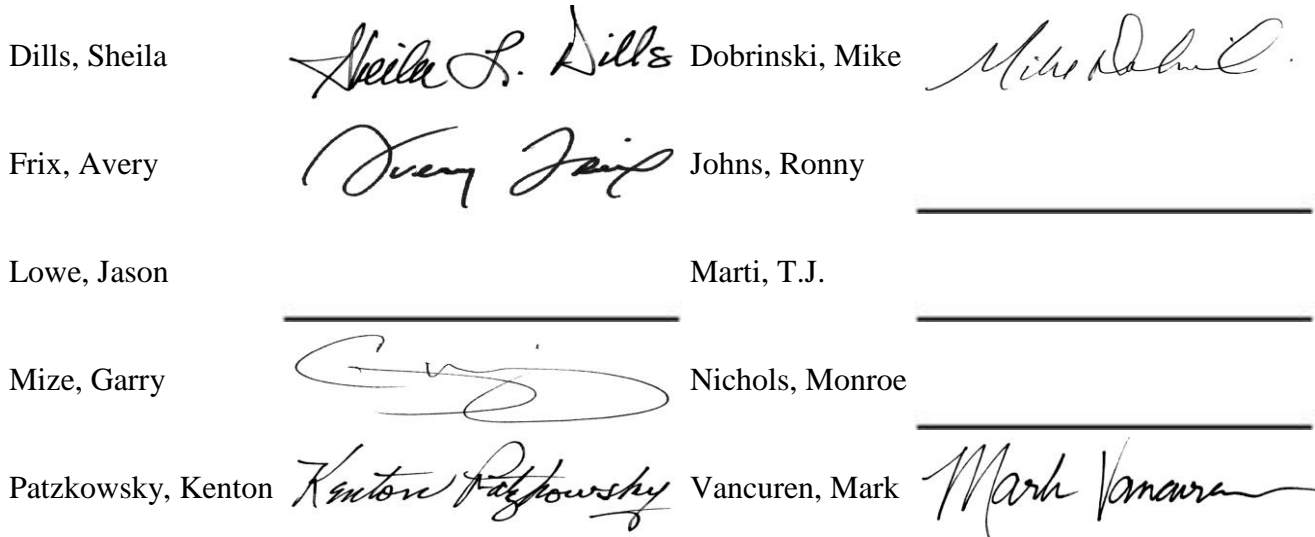 Dills, Sheila Sheila L. Dills Dobrinski, Mike Mike Dobrinski
Frix, Avery Avery Frix Johns, Ronny
Lowe, Jason Marti, T.J.
Mize, Garry Nichols, Monroe
Patzkowsky, Kenton Kenton Patzkowsky Vancuren, Mark Mark Vancuren